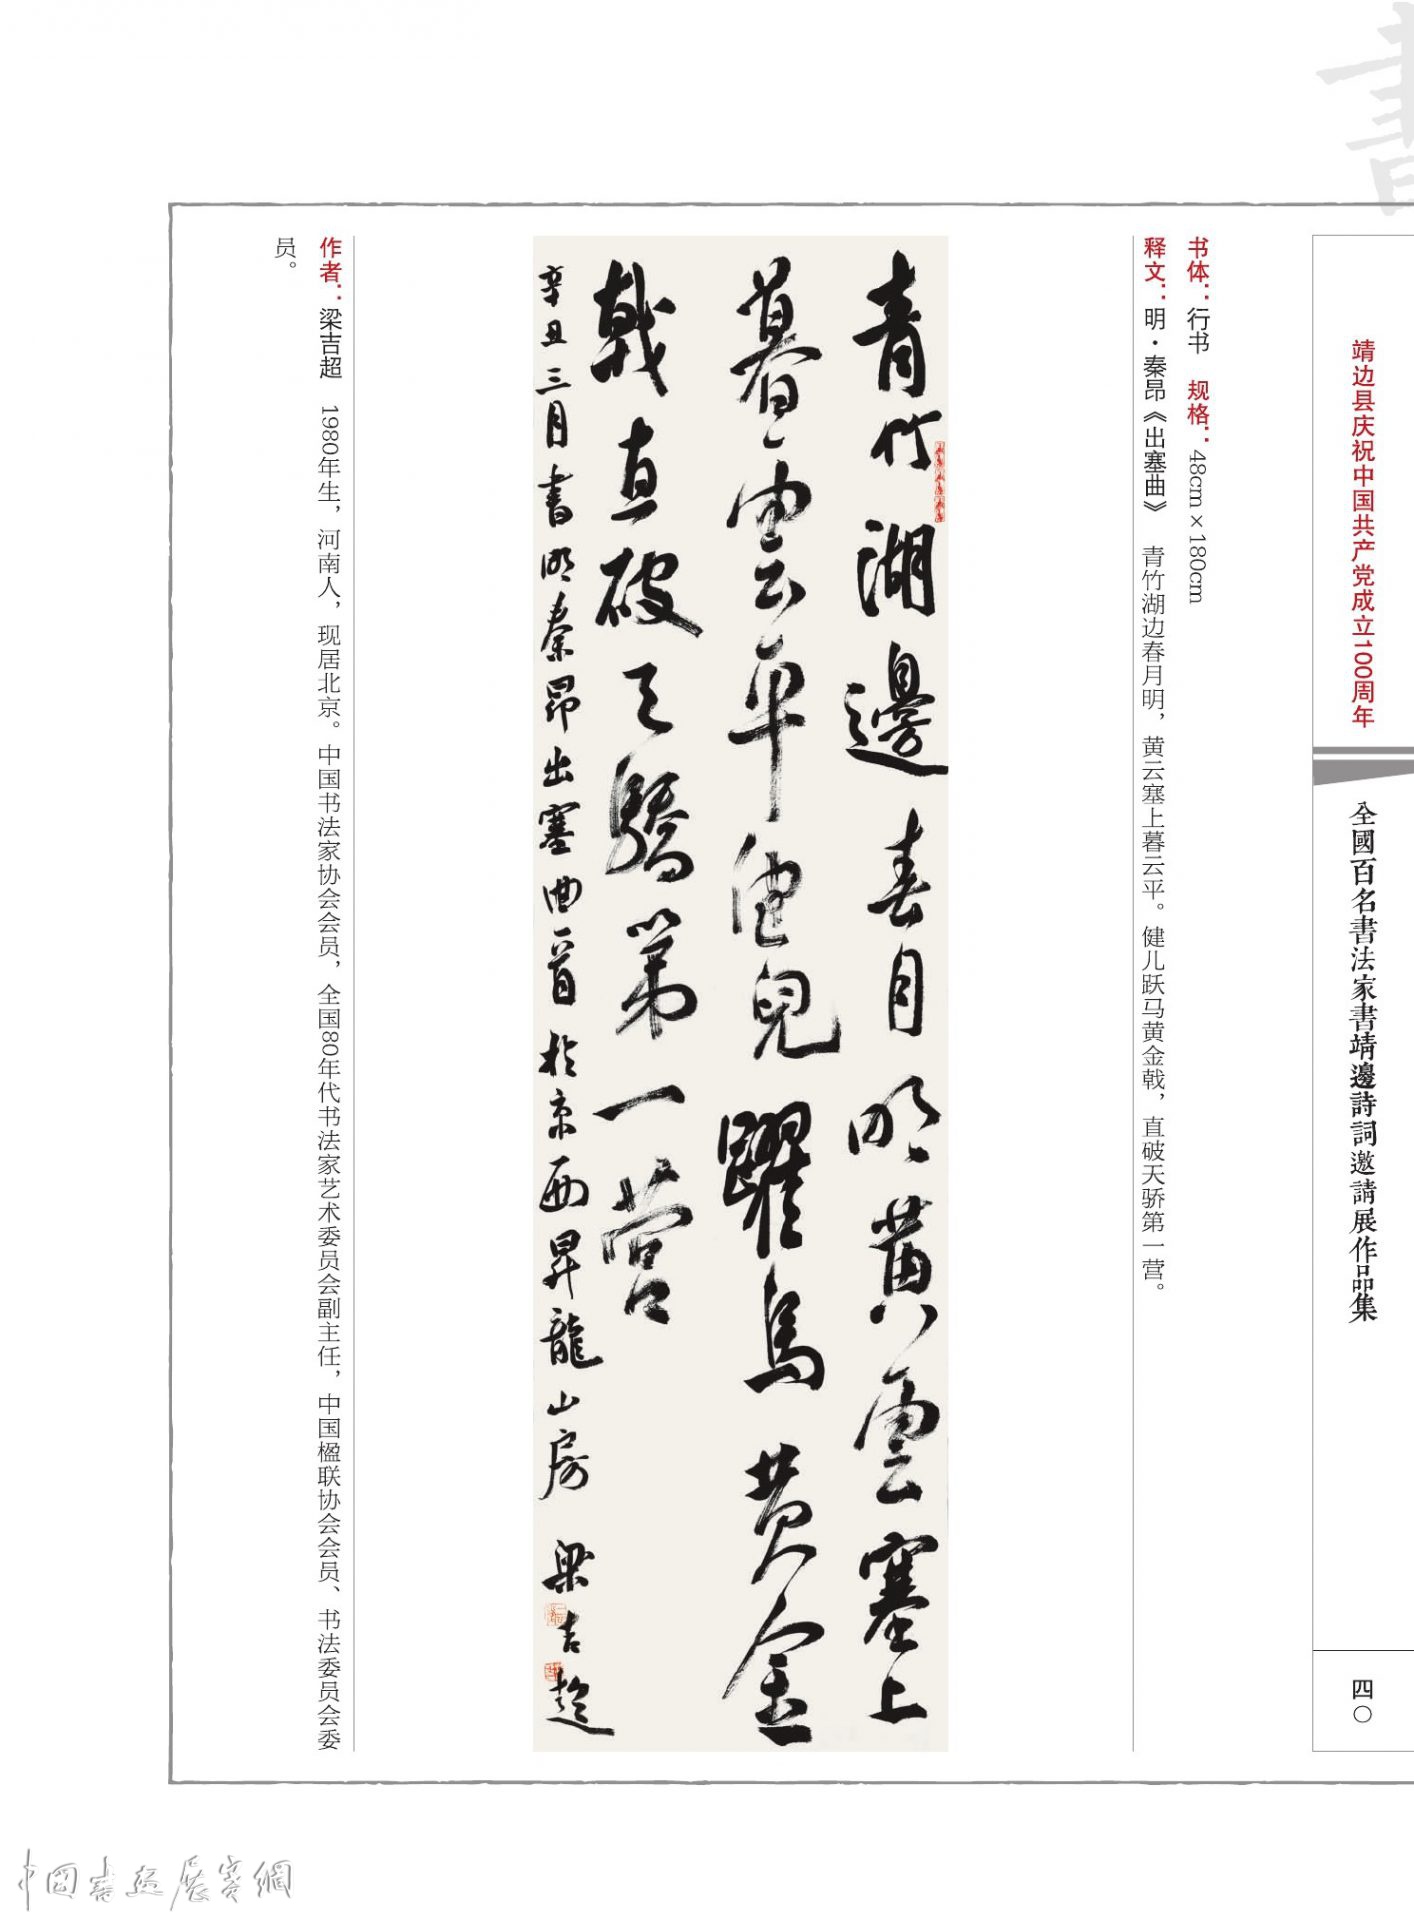 書
靖边县庆祝中国共产党成立100周年
全國百名書法家書靖邊詩詞邀請展作品集
四〇
书体：行书　规格：48cm×180cm
释文：明·秦昂《出塞曲》　青竹湖边春月明，黄云塞上暮云平。健儿跃马黄金戟，直破天骄第一营。
青竹湖邊春月明黄雲塞上
暮雲平健兒躍馬黄金
戟直破天驕第一营
辛丑三月書明秦昂出塞曲一首於京西昇龍山房　梁吉超
作者：梁吉超　1980年生，河南人，现居北京。中国书法家协会会员，全国80年代书法家艺术委员会副主任，中国楹联协会会员、书法委员会委
员。
中國書画展賽網